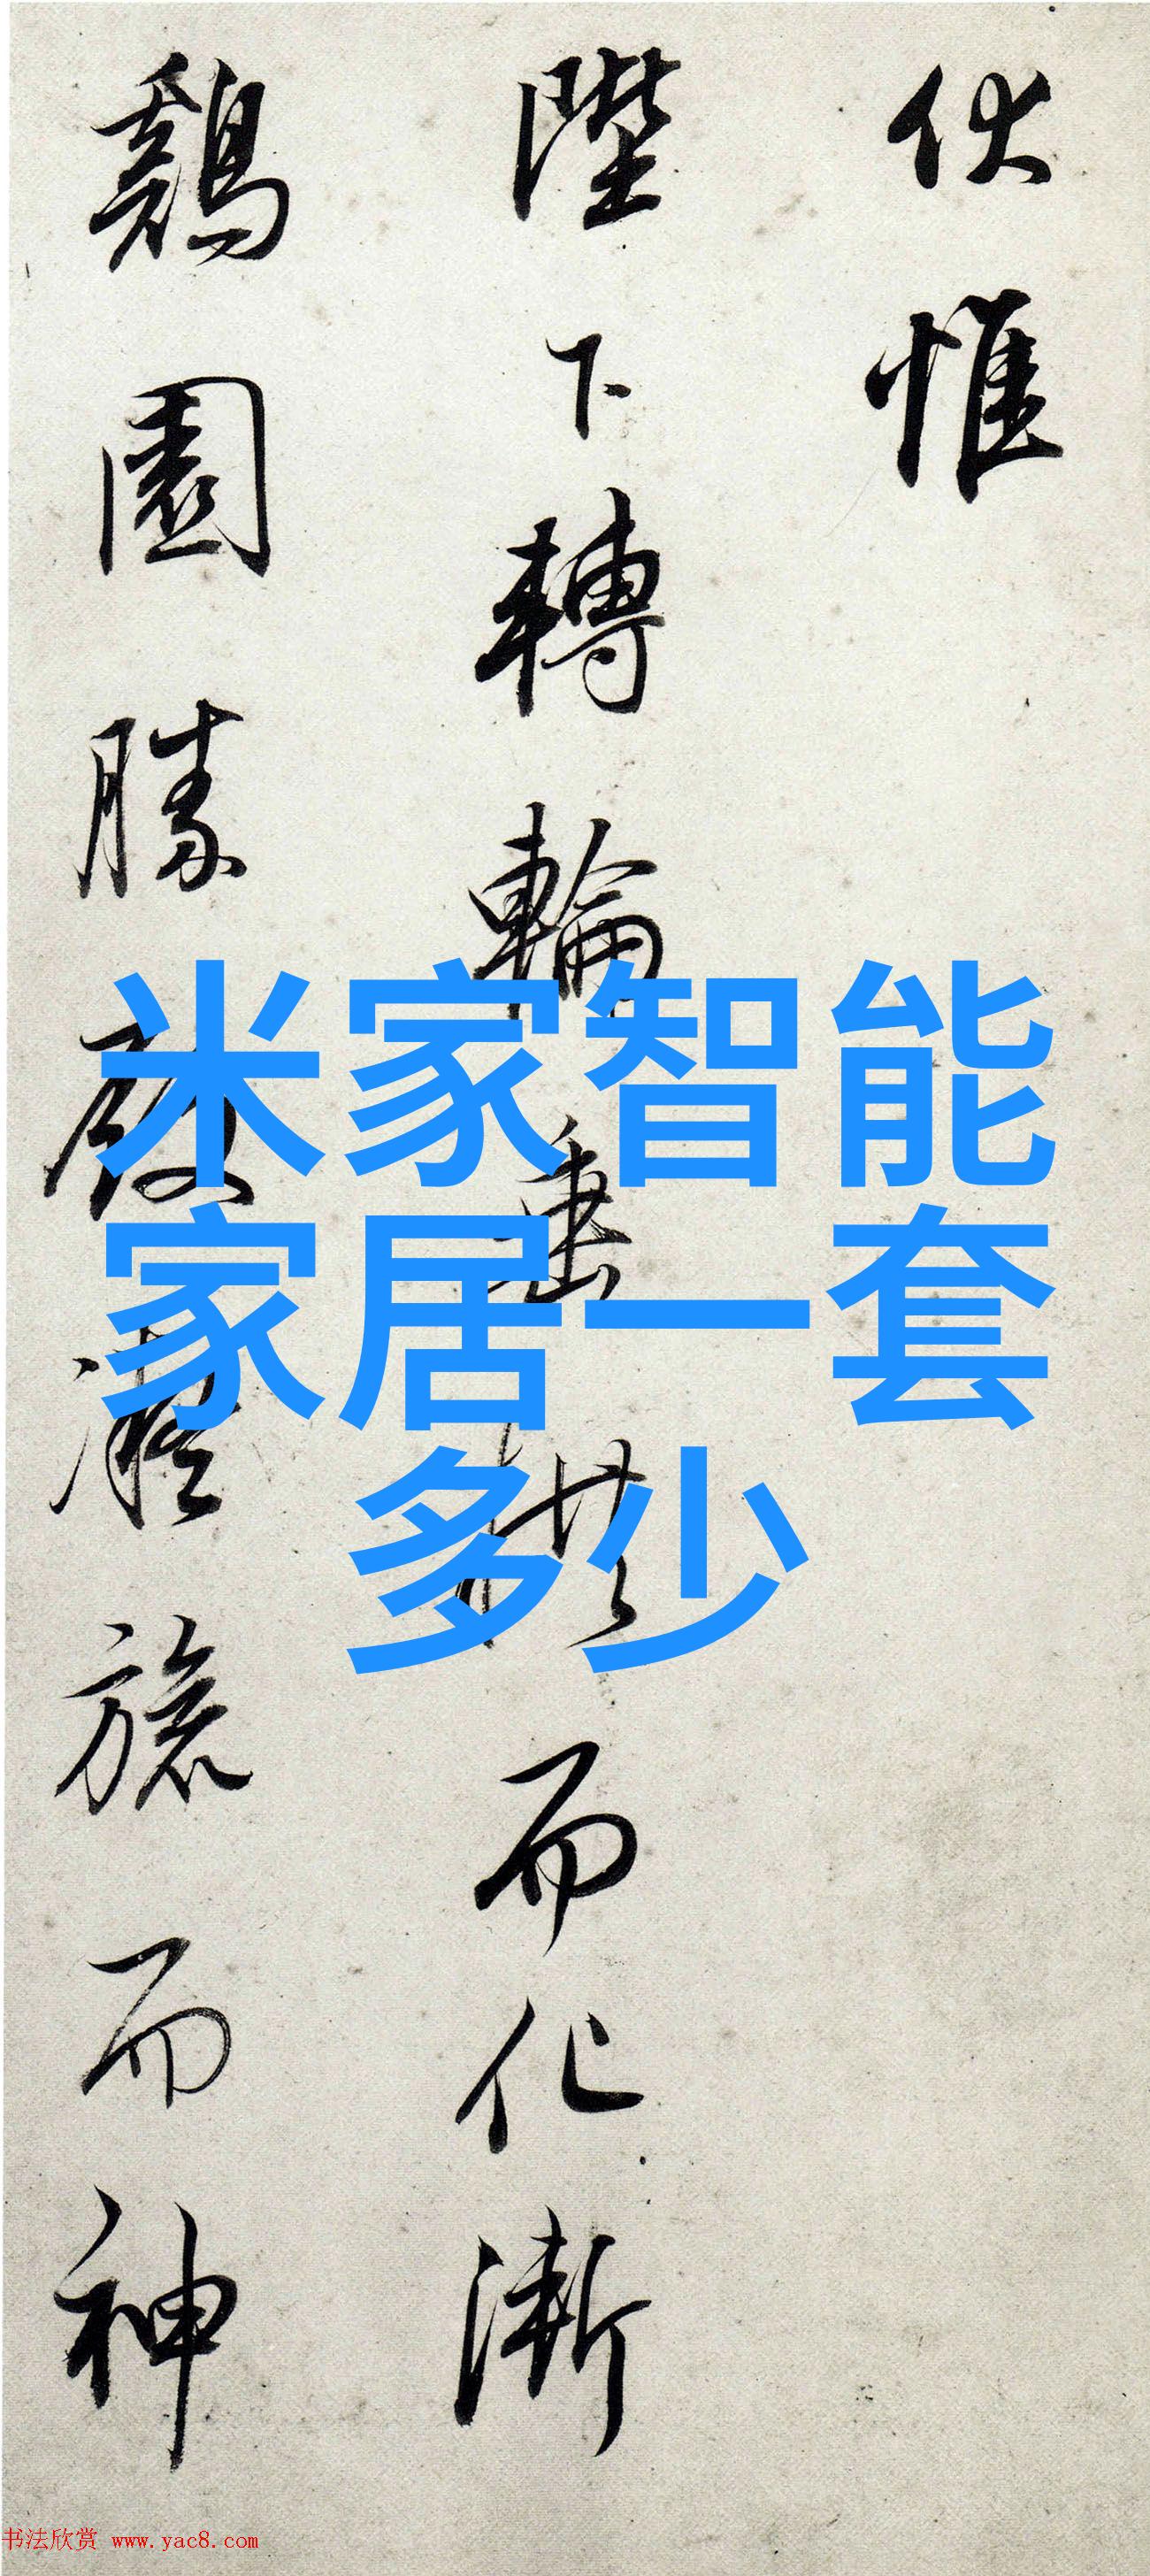 伏惟
陛下轉輪垂世而化漸
鷄園勝殿凝旒而神
米家智能
家居一套
多少
书法欣赏 www.yac8.com